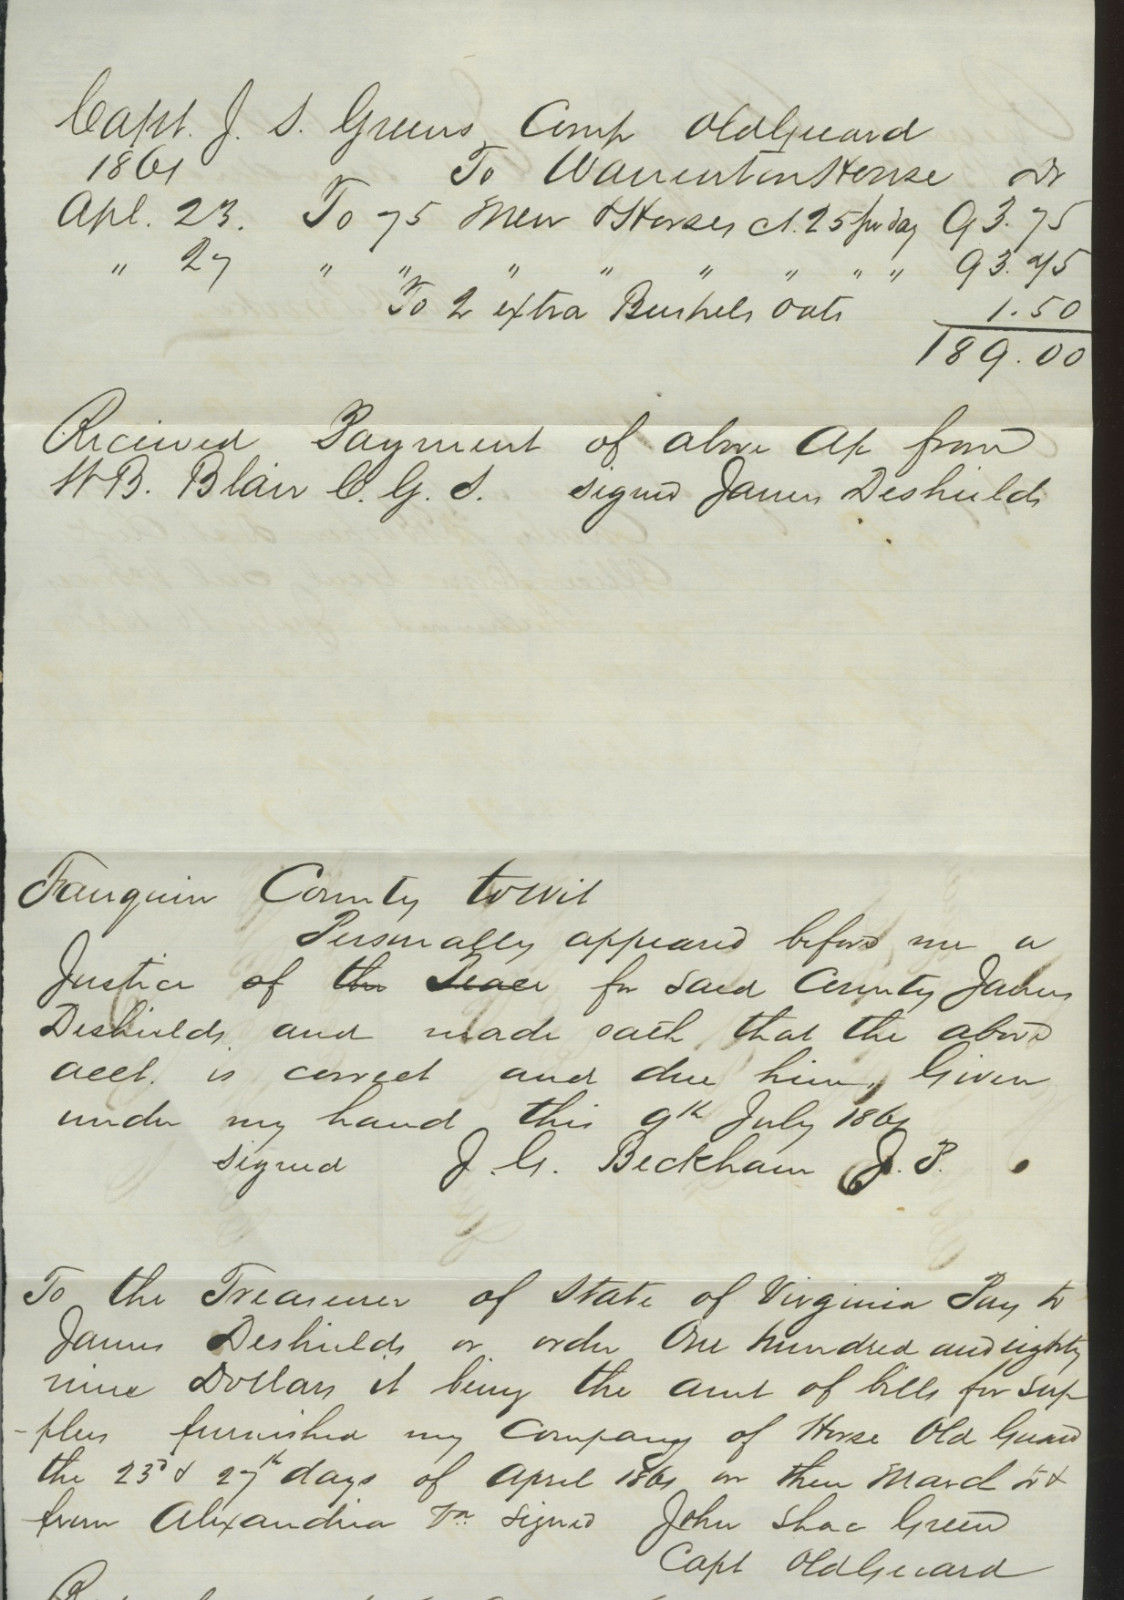 Capt. J. S. Greens Comp Old Guard
1861 To Warrenton House Dr
Apl. 23. To 75 Men & Horses at 1.25 per day 93.75
" 27 " " " " " " " " 93.75
To 2 extra Bushels Oats 1.50
189.00
Received Payment of above a/c from
W B. Blair C. G. S. signed James Deshields
Fauquier County towit
Personally appeared before me a
Justice of the Peace for said County James
Deshields and made oath that the above
acct. is correct and due him, Given
under my hand this 9th July 1861
signed J. G. Beckham J. P.
To the Treasurer of State of Virginia Pay to
James Deshields or order One hundred and eighty
nine Dollars it being the amt of bills for sup
-plies furnished my Company of Horse Old Guard
the 23d & 27th days of April 1861 on their March to &
from Alexandria Va signed John Shac Green
Capt Old Guard